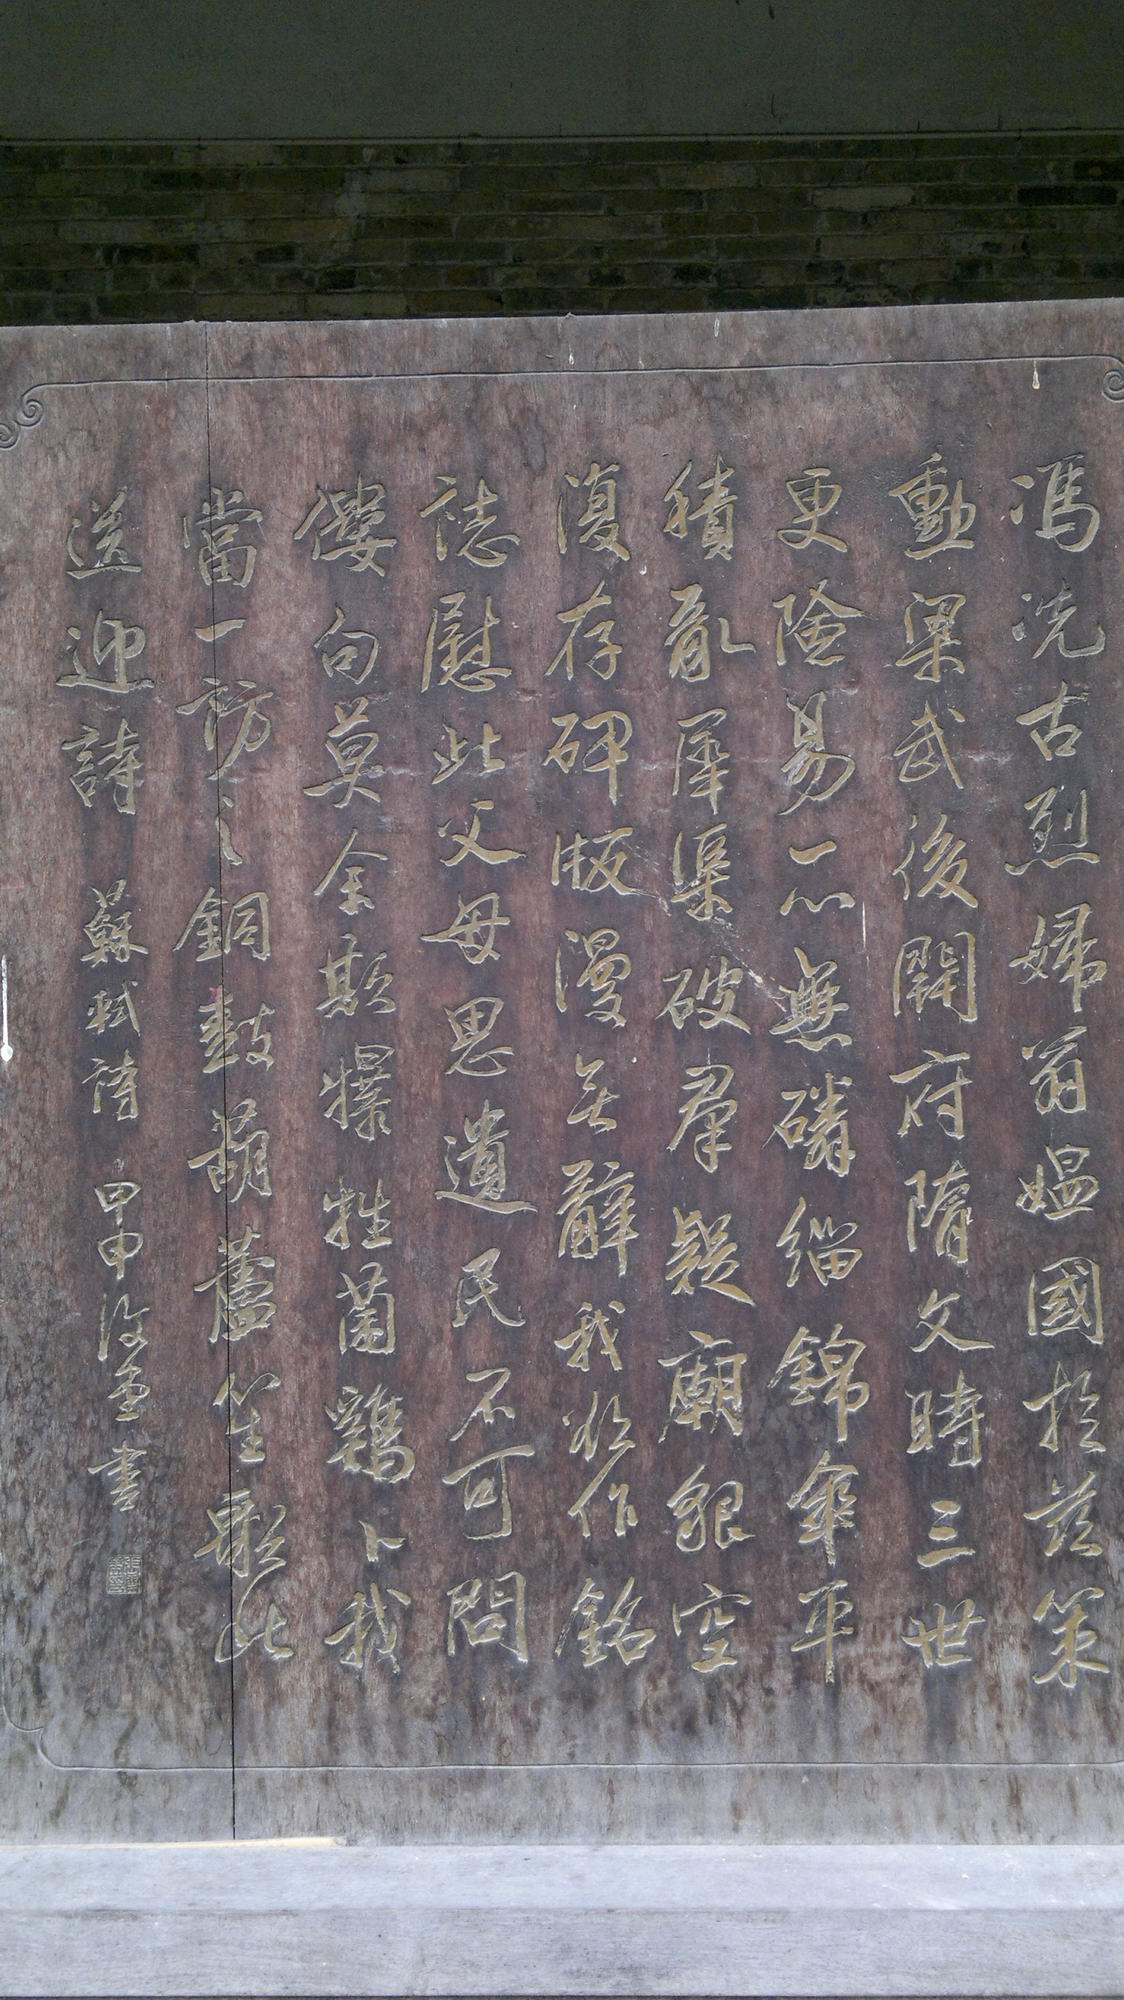 馮冼古烈婦翁媼國於茲策
勳梁武後開府隋文時三世
更險易一心無磷緇錦傘平
積亂犀渠破羣疑廟貌空
復存碑版漫無辭我欲作銘
誌慰此父母思遺民不可問
僂句莫余欺犦牲菌鷄卜我
當一訪之銅鼓葫蘆笙歌此
送迎詩 蘇軾詩 甲申 書